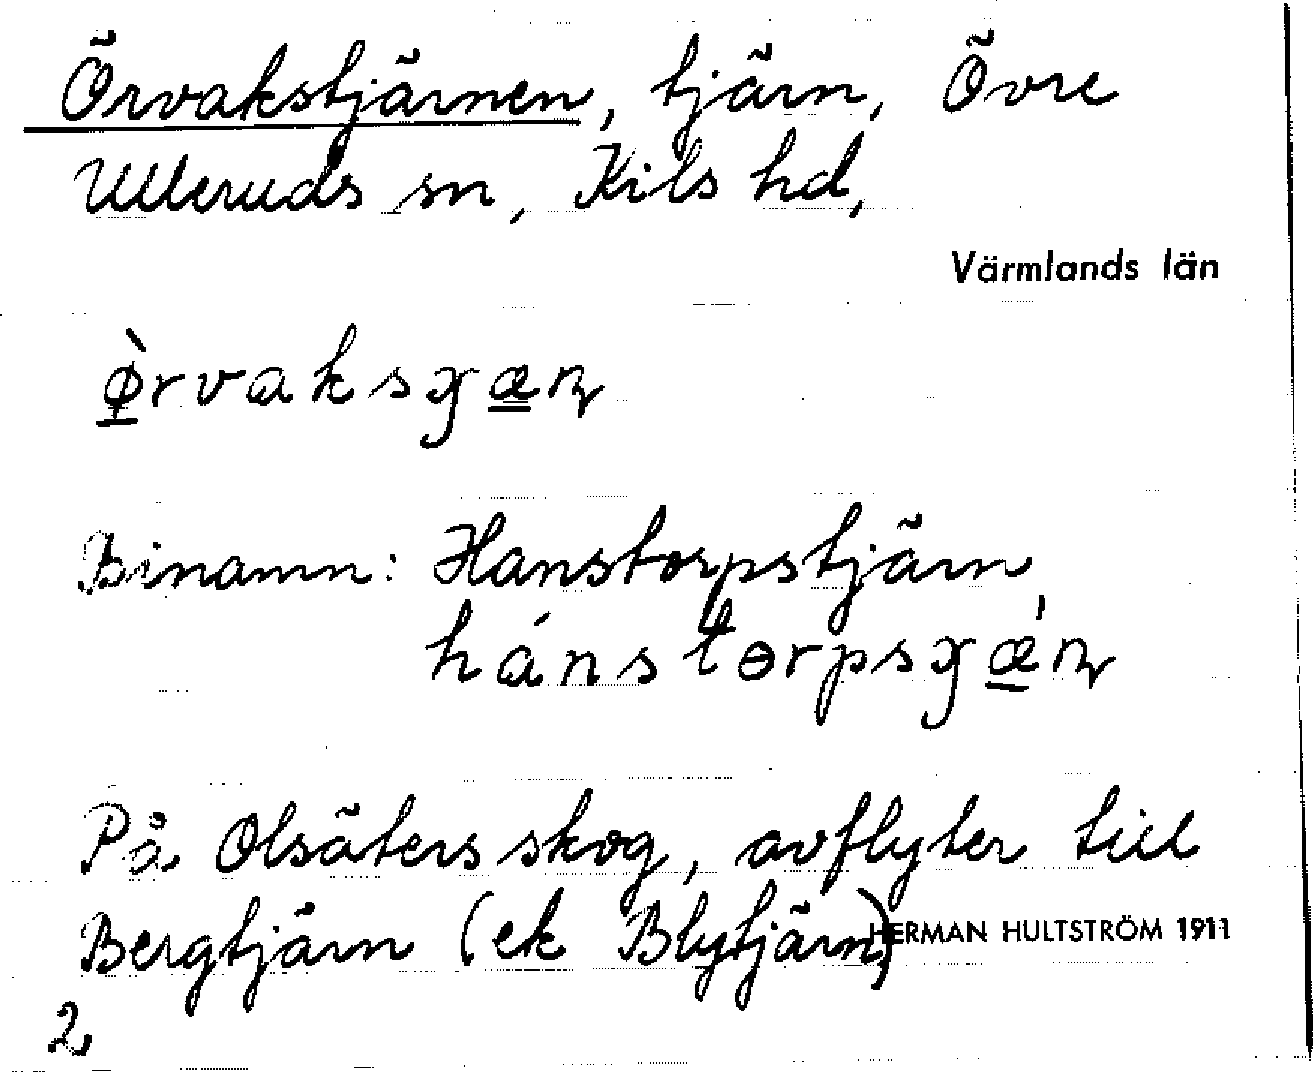 Örvakstjärnen, tjärn, Övre
Ulleruds sn, Kils hd,
Värmlands län
ø̱̀rvaksɣæ̳ɳ
Binamn: Hanstorpstjärn
hánstɵrpsɣǽ̱ɳ
På Olsäters skog, avflyter till
Bergtjärn (ek Blytjärn)
HERMAN HULTSTRÖM 1911
2